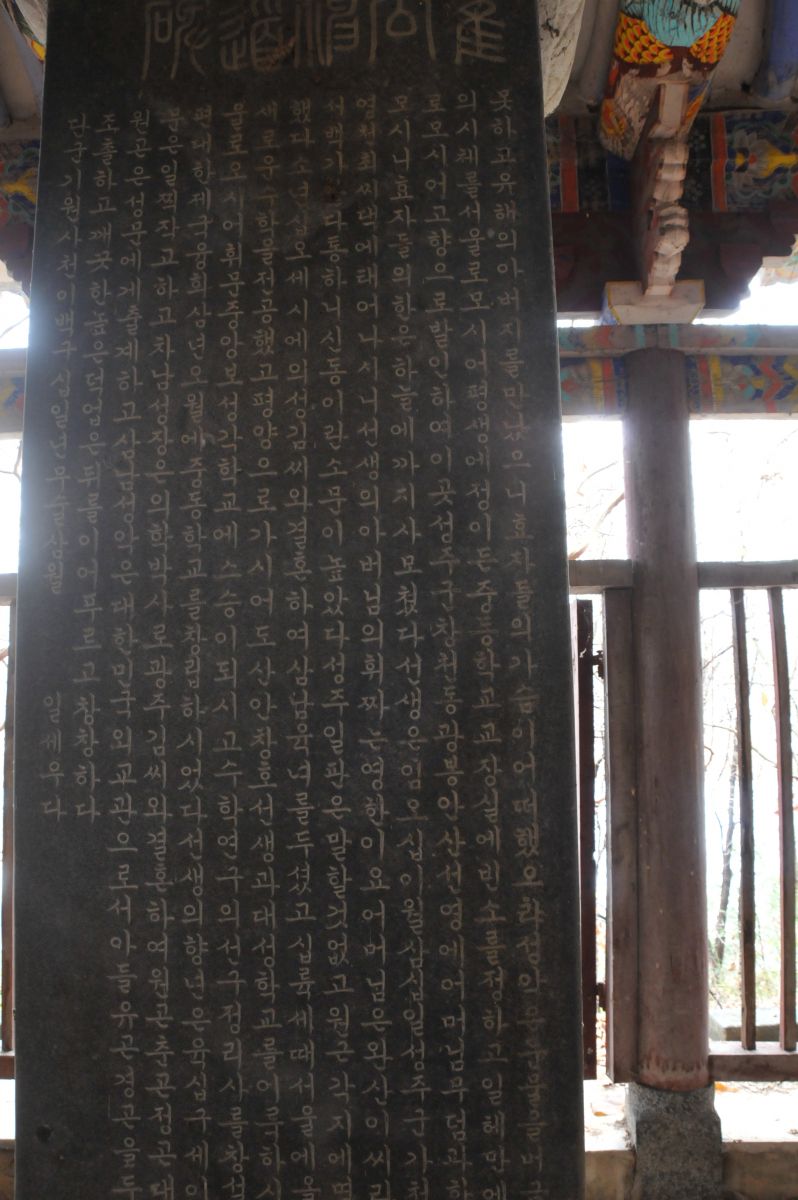 崔公 道碑
못하고유해의아버지를만났으니효자들의가슴이어떠했으랴성의문중들을
의시체를서울로모시어평생에성이든중등학교교장실에빈소를정하고일레만에
로모시어고향으로발인하여이곳성주군창천동광봉안산선영에어머님무덤과하
모시니효자들의한은하늘에까지사모쳤다선생은임오십이월삼십일성주군가천
영천최씨댁에태어나시니선생의아버님의휘짜는영한이요어머님은완산이씨라
서백기다통하니신동이란소문이높았다성주일판은말할것없고원근각지에떠
했다소년십오세시에의성김씨와결혼하여삼남육녀를두셨고십륙세때서울에올
새로운수학을전공했고평양으로가시어도산안창호선생과대성학교를이룩하시
울로오시어휘문중앙보성각학교에스승이되시고수학연구의선구정리사를창설
편대한제국융희삼년오월에중동학교를창립하시었다선생의향년은육십구세이
분은일찍작고하고차남성장은의학박사로광주김씨와결혼하여원곤춘곤정곤대
원곤은성문에게출계하고삼남성악은대한민국외교관으로서아들유곤경곤을두
조촐하고깨끗한높은덕업은뒤를이어푸르고창창하다
단군기원사천이백구십일년무술상월 일세우다